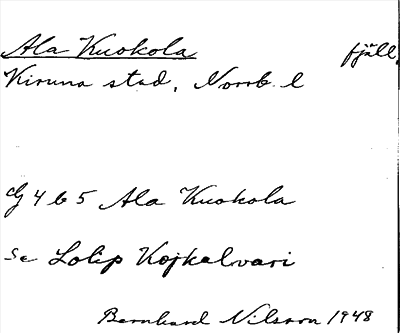 Ala Kuokola fjäll,
Kiruna stad, Norrb. l
dg 4 b 5 Ala Kuokola
Se Lolip Kojkalvari
Bernhard Nilsson 1948